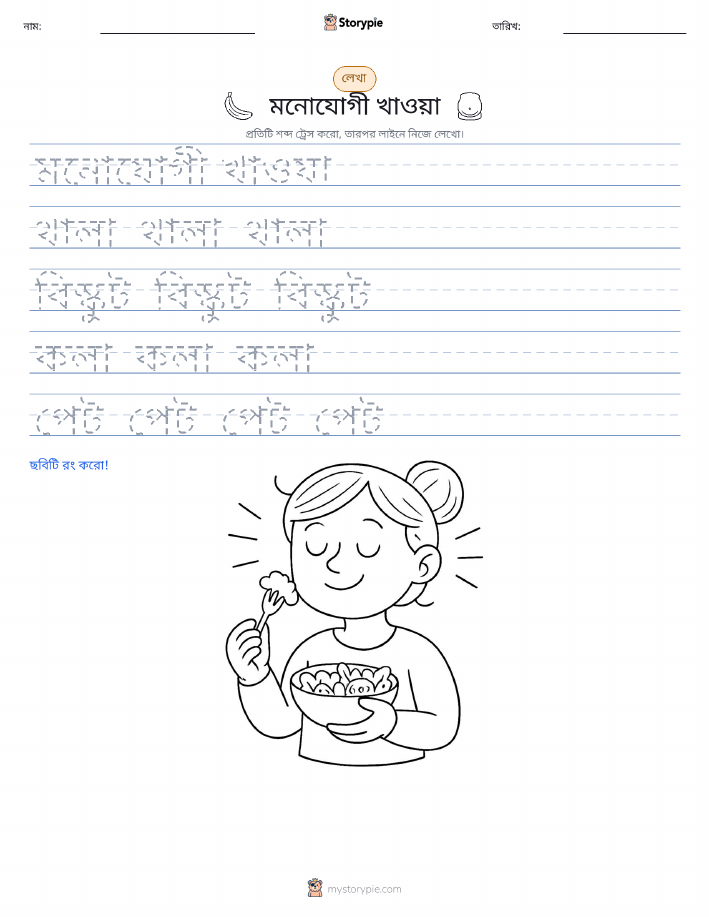 নাম:
Storypie
তারিখ:
লেখা
মনোযোগী খাওয়া
প্রতিটি শব্দ ট্রেস করো, তারপর লাইনে নিজে লেখো।
মনোযোগী খাওয়া
থালা থালা থালা
বিস্কুট বিস্কুট বিস্কুট
কলা কলা কলা
পেট পেট পেট পেট
ছবিটি রং করো!
mystorypie.com